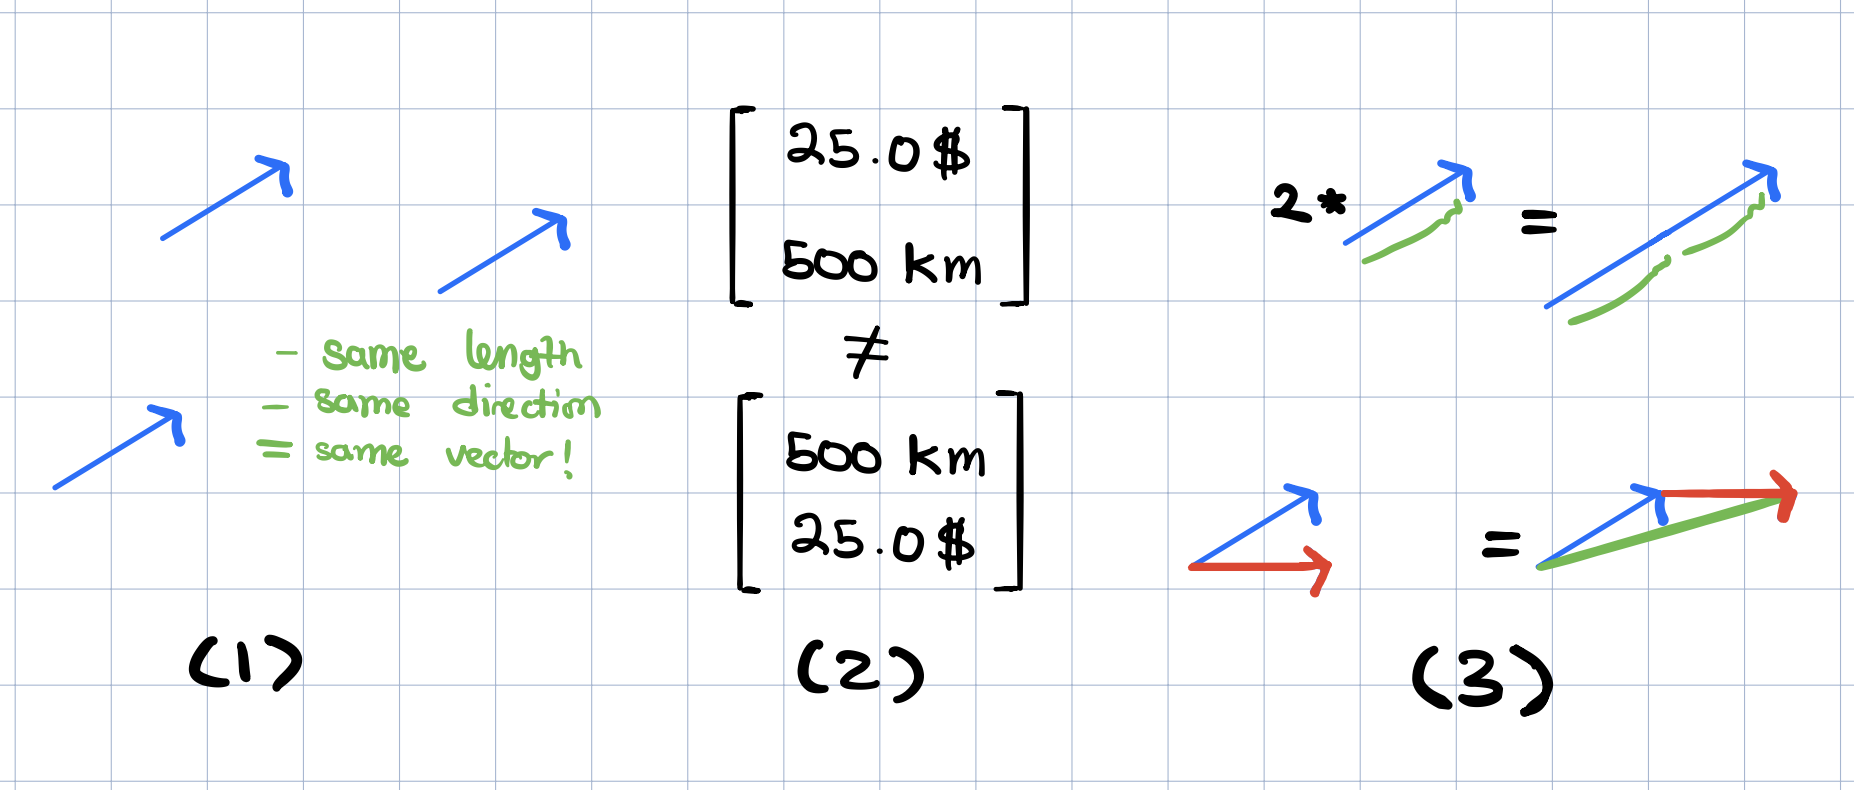 - same length
- same direction
= same vector!
(1)
25.0$
500 km
≠
500 km
25.0$
(2)
2* =
=
(3)